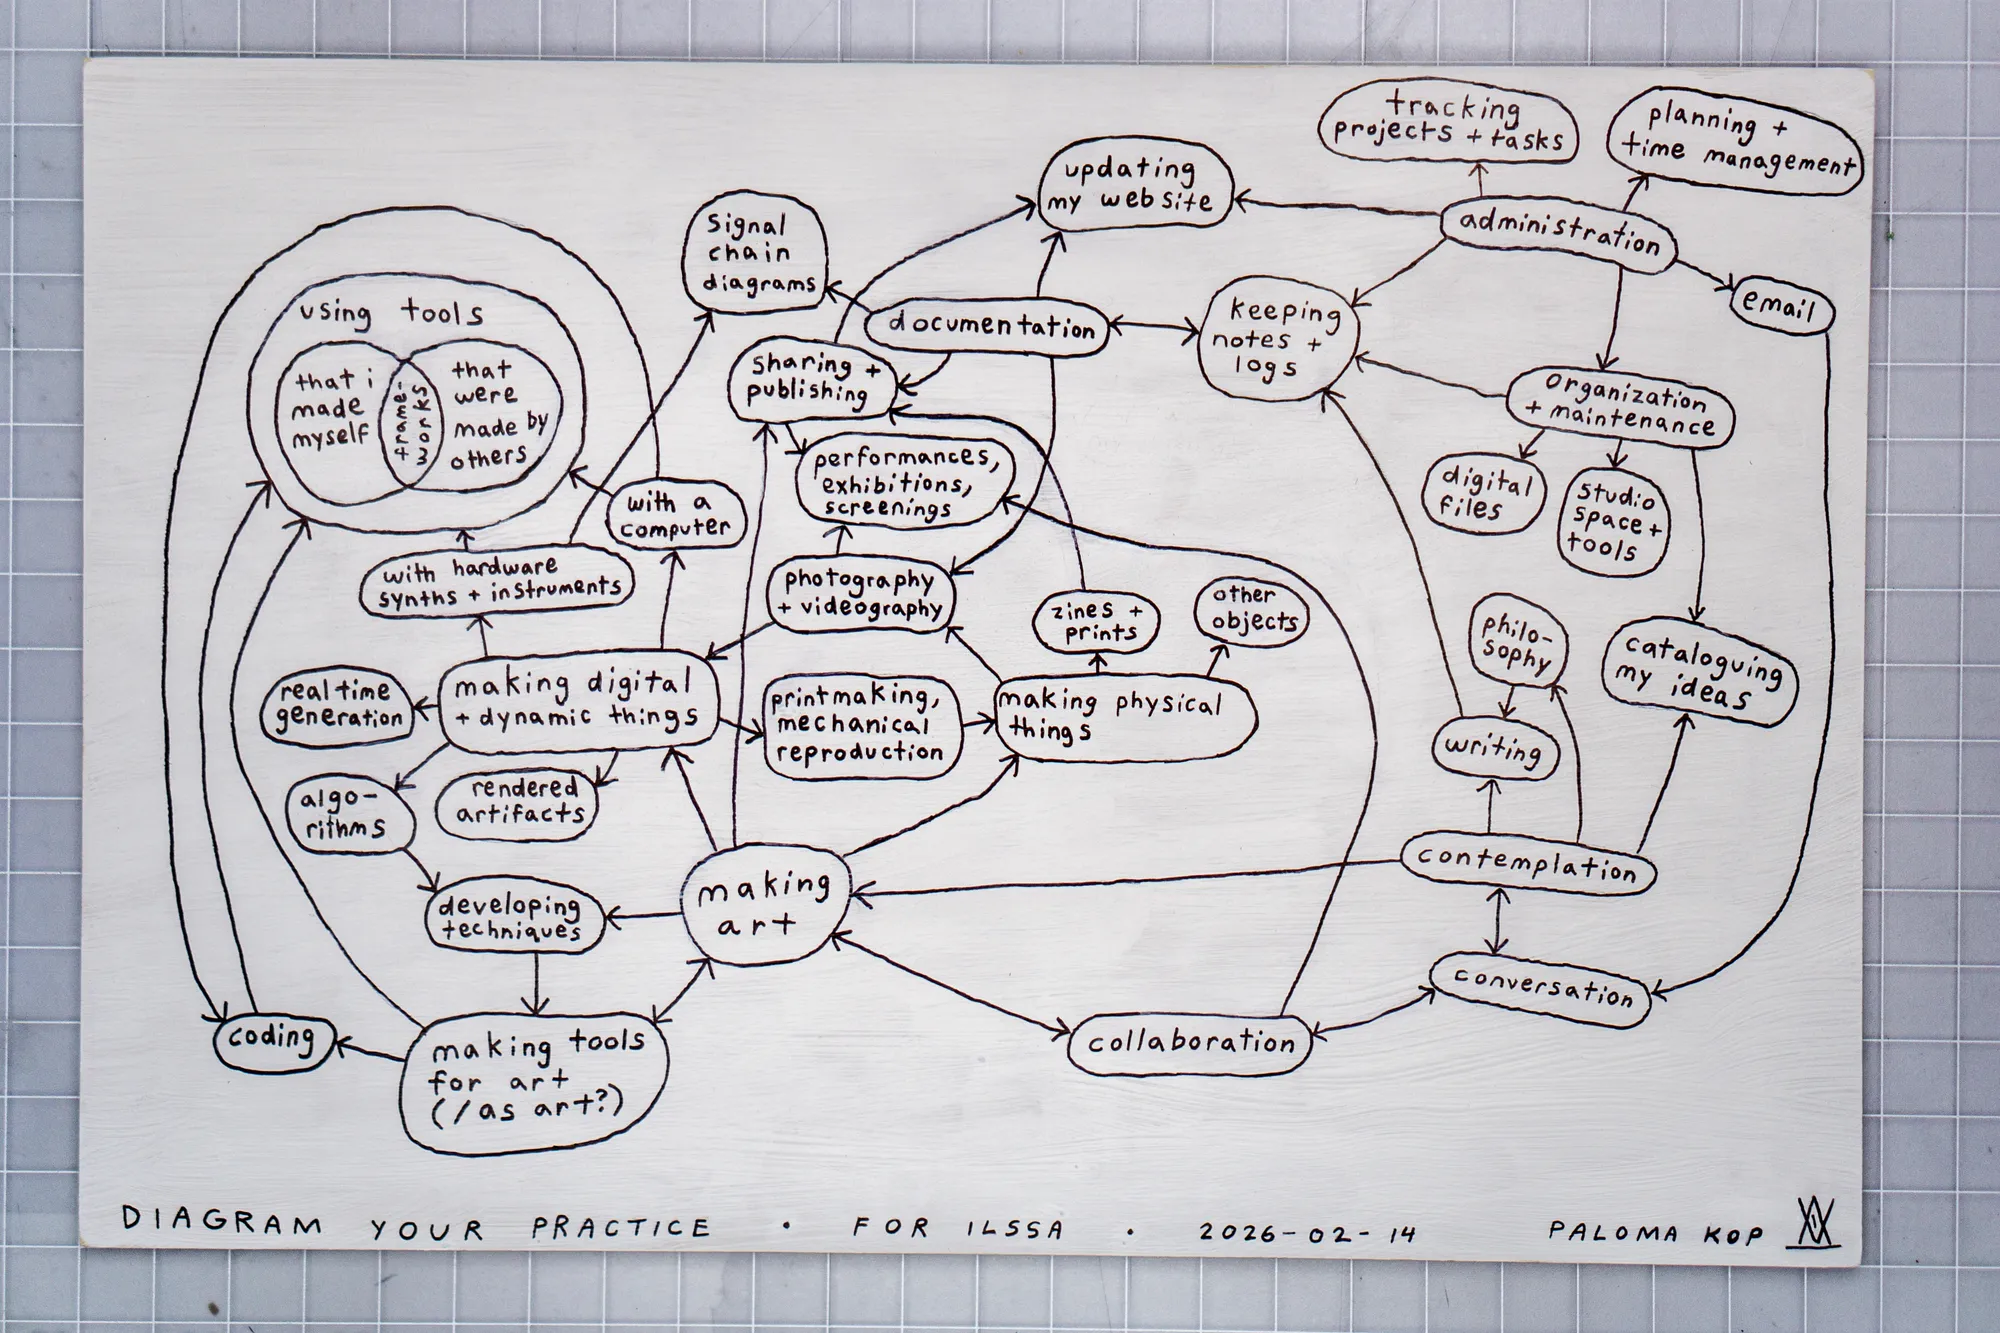 tracking
projects + tasks
planning +
time management
updating
my website
administration
signal
chain
diagrams
email
using tools
that i
made
myself
frame-
works
that
were
made by
others
documentation
keeping
notes +
logs
sharing +
publishing
organization
+ maintenance
performances,
exhibitions,
screenings
digital
files
studio
space +
tools
with a
computer
with hardware
synths + instruments
photography
+ videography
zines +
prints
other
objects
philo-
sophy
cataloguing
my ideas
real time
generation
making digital
+ dynamic things
printmaking,
mechanical
reproduction
making physical
things
writing
algo-
rithms
rendered
artifacts
making
art
contemplation
developing
techniques
conversation
coding
making tools
for art
(/as art?)
collaboration
DIAGRAM YOUR PRACTICE • FOR ILSSA • 2026-02-14 PALOMA KOP